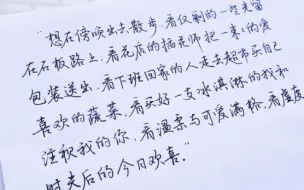 “想在傍晚出去散步,看仅剩的一些光留
在石板路上,看花店的插花师把一束束的爱
包装送出,看下班回家的人走去超市买自己
喜欢的蔬菜,看买好一支冰淇淋的我和
注视我的你,看温柔与可爱满格,看虚度
时光后的今日欢喜。”